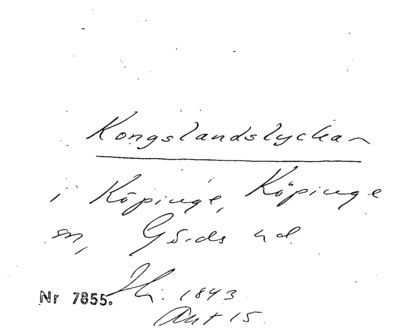 Kongslandslyckan
i Köpinge, Köpinge
sn, Gärds hd.
1843
Nr 7855.
Akt 15